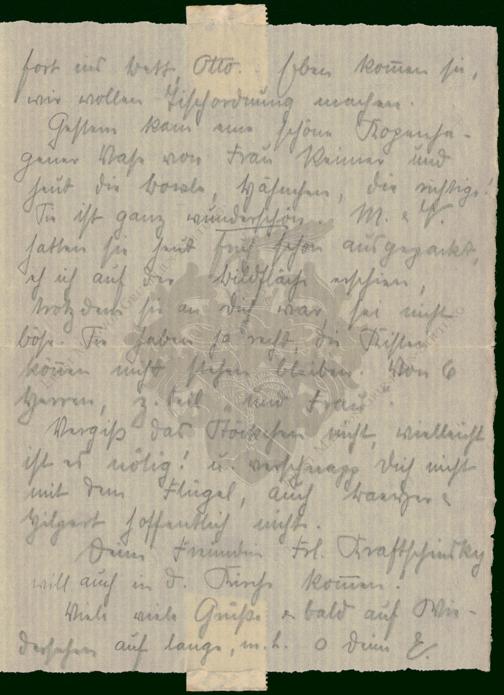 fort ins Bett, Otto. Eben kom̅en sie,
wir wollen Tischordnung machen.
Gestern kam eine schöne Kopenha-
gener Vase von Frau Reimer und
heut die Bowle, Häschen, die richtige!
Sie ist ganz wunderschön. M. & V.
hatten sie heut früh schon ausgepackt,
eh ich auf der Bildfläche erschien,
trotzdem sie an Dich war, sei nicht
böse. Sie haben ja recht, die Kisten
kön̅en nicht stehen bleiben. Von 6
Herren, z. Teil "und Frau".
Vergiß das Stöckchen nicht, vielleicht
ist es nötig! u. verschnapp Dich nicht
mit dem Flügel, auch &
Hilgert hoffentlich nicht.
Deine Freundin Frl. Kraftschinsky
will auch in d. Kirche kom̅en.
Viele viele Grüße & bald auf Wie-
dersehen auf lange, m. L. o Deine E.